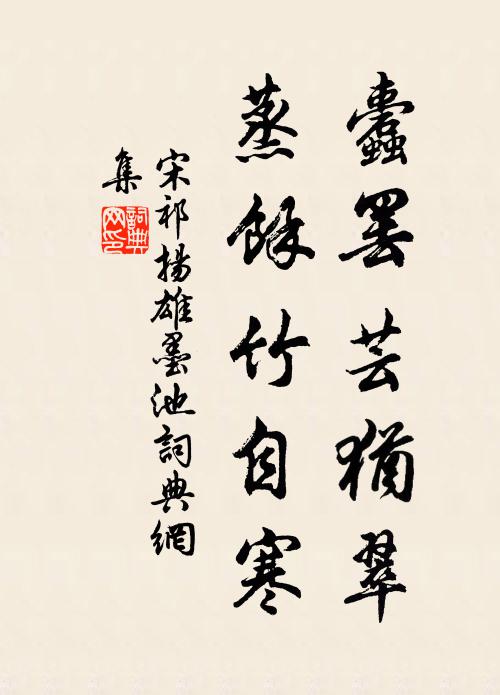 蠹罷芸猶翠
蒸餘竹自寒
宋祁揚雄墨池詞典網
集
詞典網印